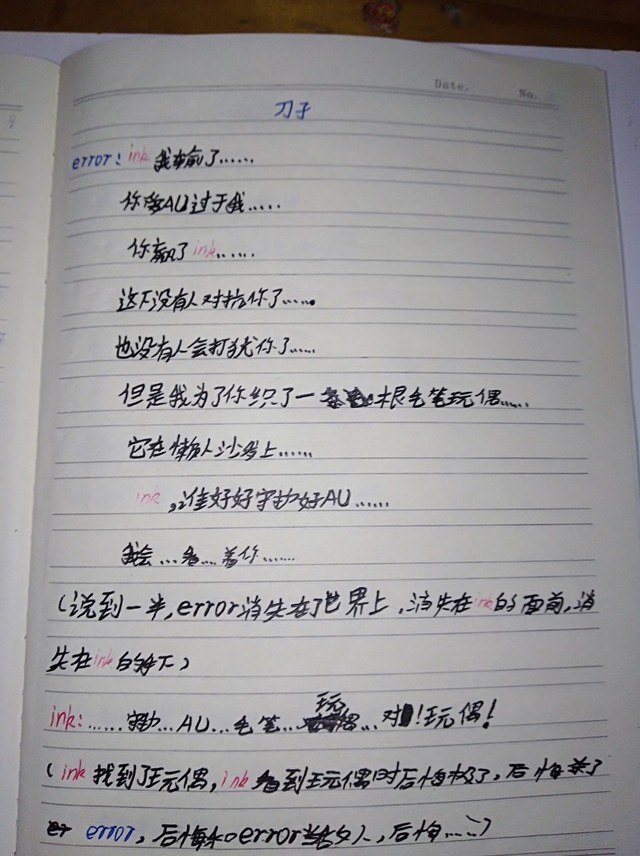 Date.
No.
刀子
error: ink 我输了......
你每AU过于我.....
你赢了ink......
这下没有人对抗你了......
也没有人会打扰你了.....
但是我为了你织了一根毛笔玩偶.....
它在懒人沙发上......
ink,准好好守护好AU......
我会...看...着你......
(说到一半,error消失在了世界上,消失在ink的面前,消
失在ink的下)
ink:......守护...AU...毛笔...玩偶...对!玩偶!
(ink找到了玩偶,ink看到玩偶时后悔极了,后悔杀了
error,后悔和error当敌人,后悔......)